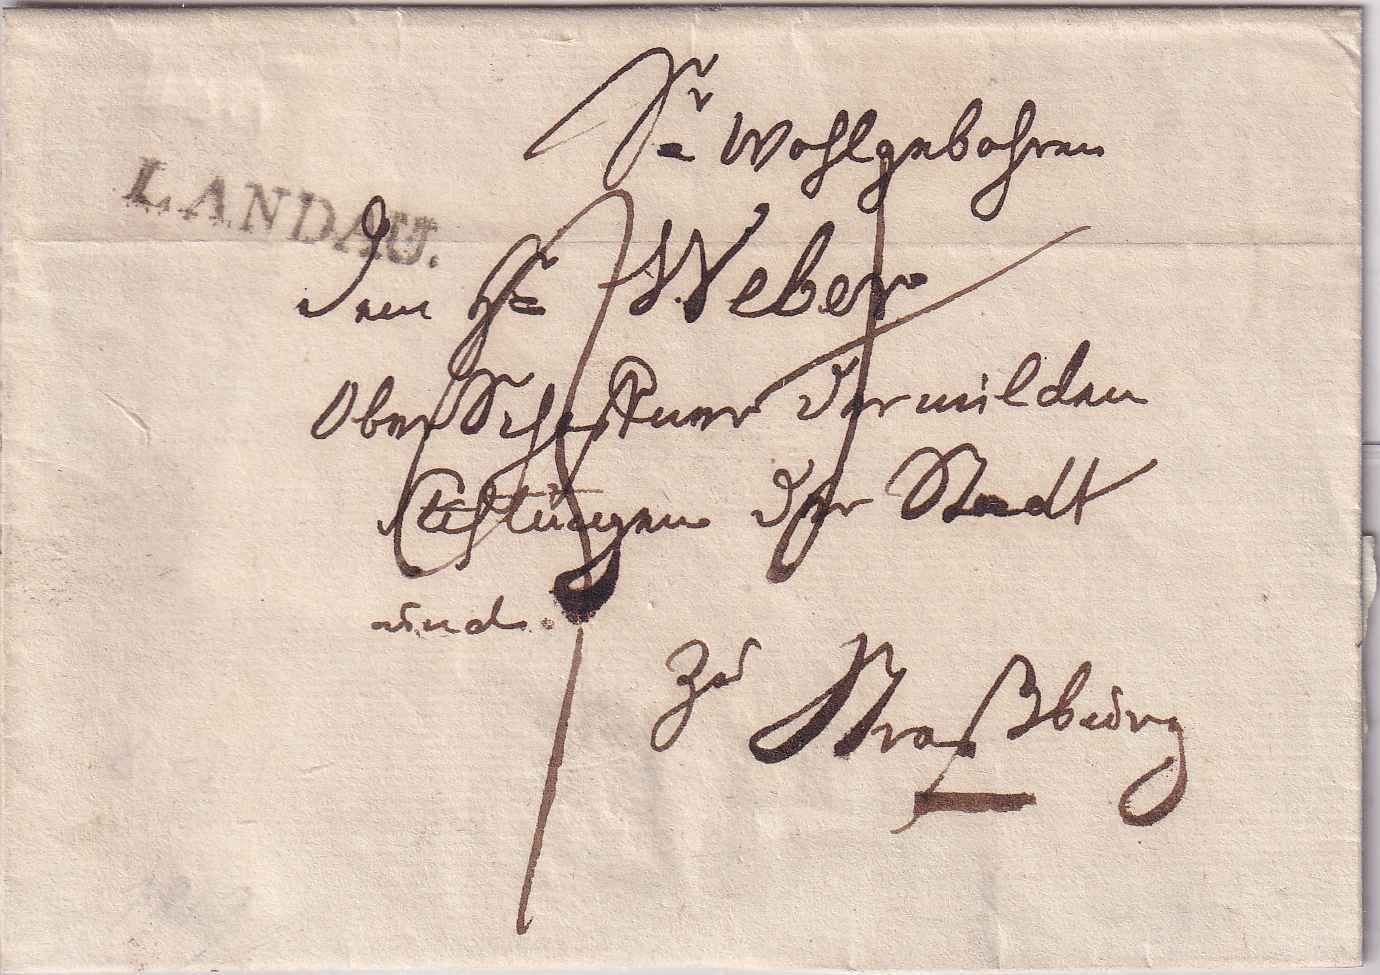 Sr Wohlgebohren
LANDAU.
dem Hr Weber
Ober Schaffner der milden
Stiftungen der Stadt
und.
zu Straßburg